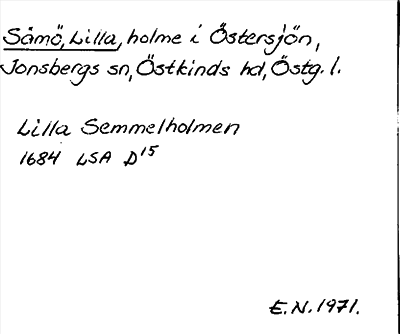 Såmö, Lilla, holme i Östersjön,
Jonsbergs sn, Östkinds hd, Östg. l.
Lilla Semmelholmen
1684 LSA D15
E.N. 1971.